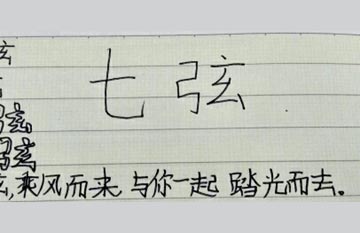 七弦
弦
弦
弦,乘风而来 与你一起 踏光而去。